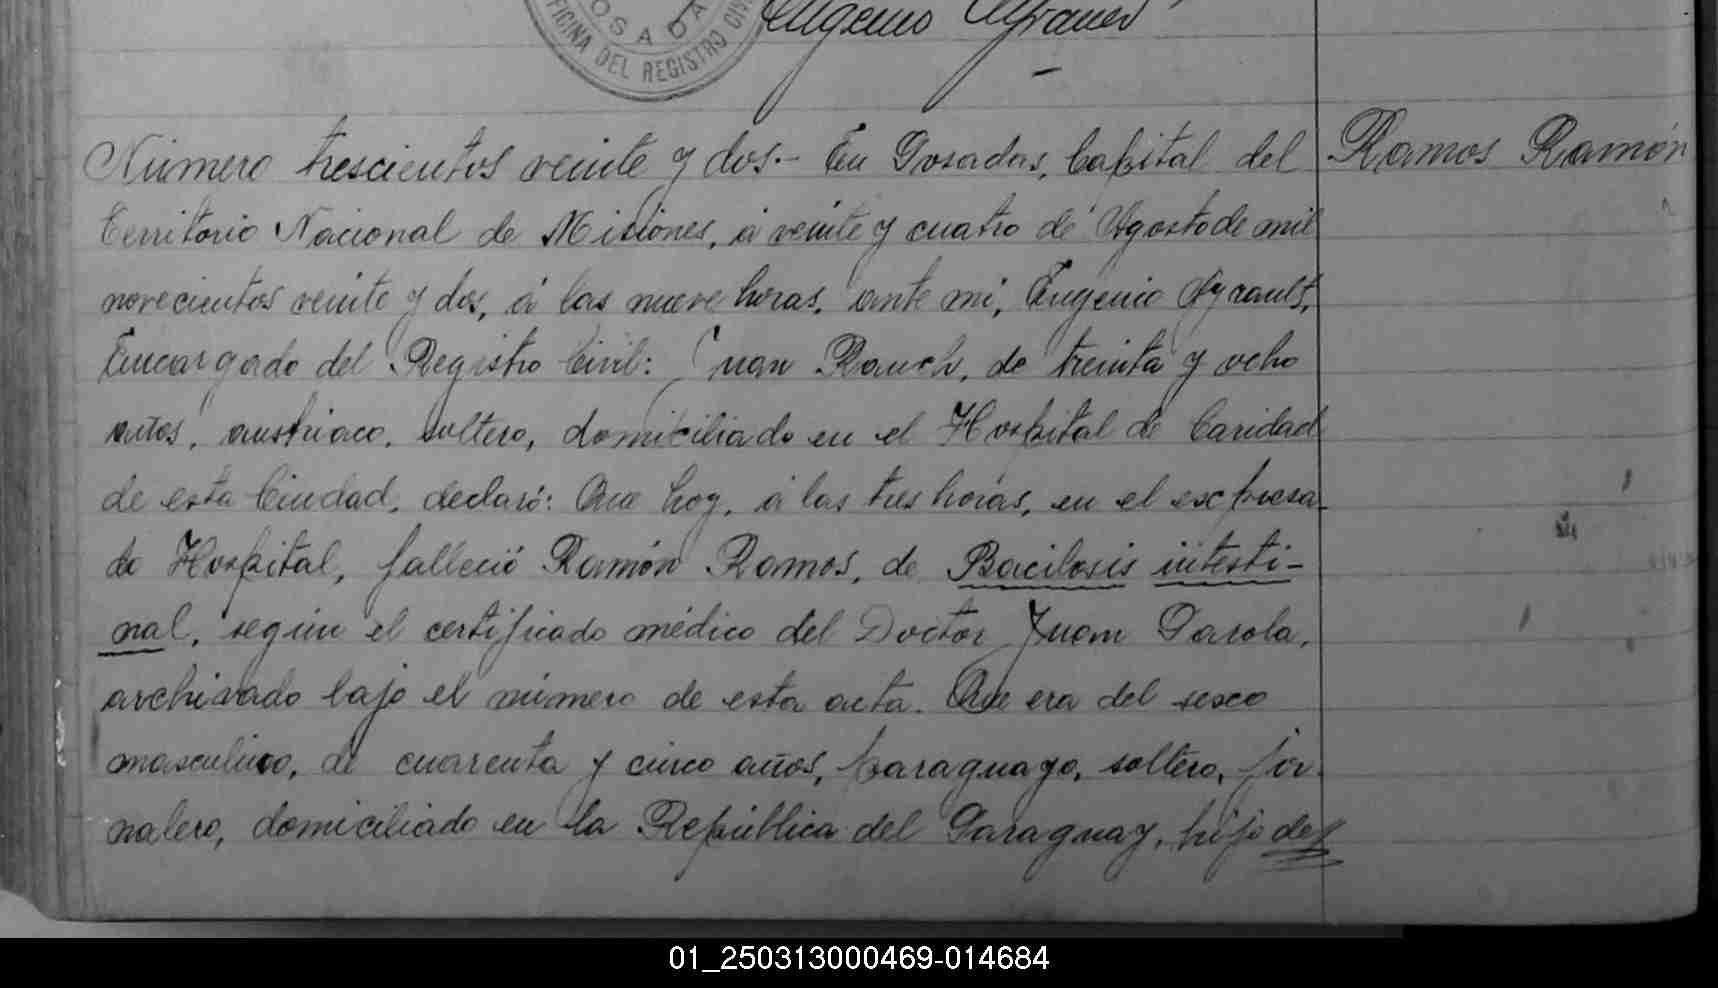 OSADA
OFICINA DEL REGISTRO CIV
Eugenio Ayrault
Número trescientos veinte y dos.- En Posadas, Capital del
Ramos Ramón
Territorio Nacional de Misiones, á veinte y cuatro de Agosto de mil
novecientos veinte y dos, á las nueve horas, ante mi, Eugenio Ayrault,
Encargado del Registro Civil: Juan Rauch, de treinta y ocho
años, austriaco, soltero, domiciliado en el Hospital de Caridad
de esta Ciudad, declaró: Que hoy, á las tres horas, en el expresa-
do Hospital, falleció Ramón Ramos, de Bacilosis intesti-
nal, según el certificado médico del Doctor Juan Parola,
archivado bajo el número de esta acta. Que era del sexo
masculino, de cuarenta y cinco años, paraguayo, soltero, jor-
nalero, domiciliado en la República del Paraguay, hijo de
01_250313000469-014684